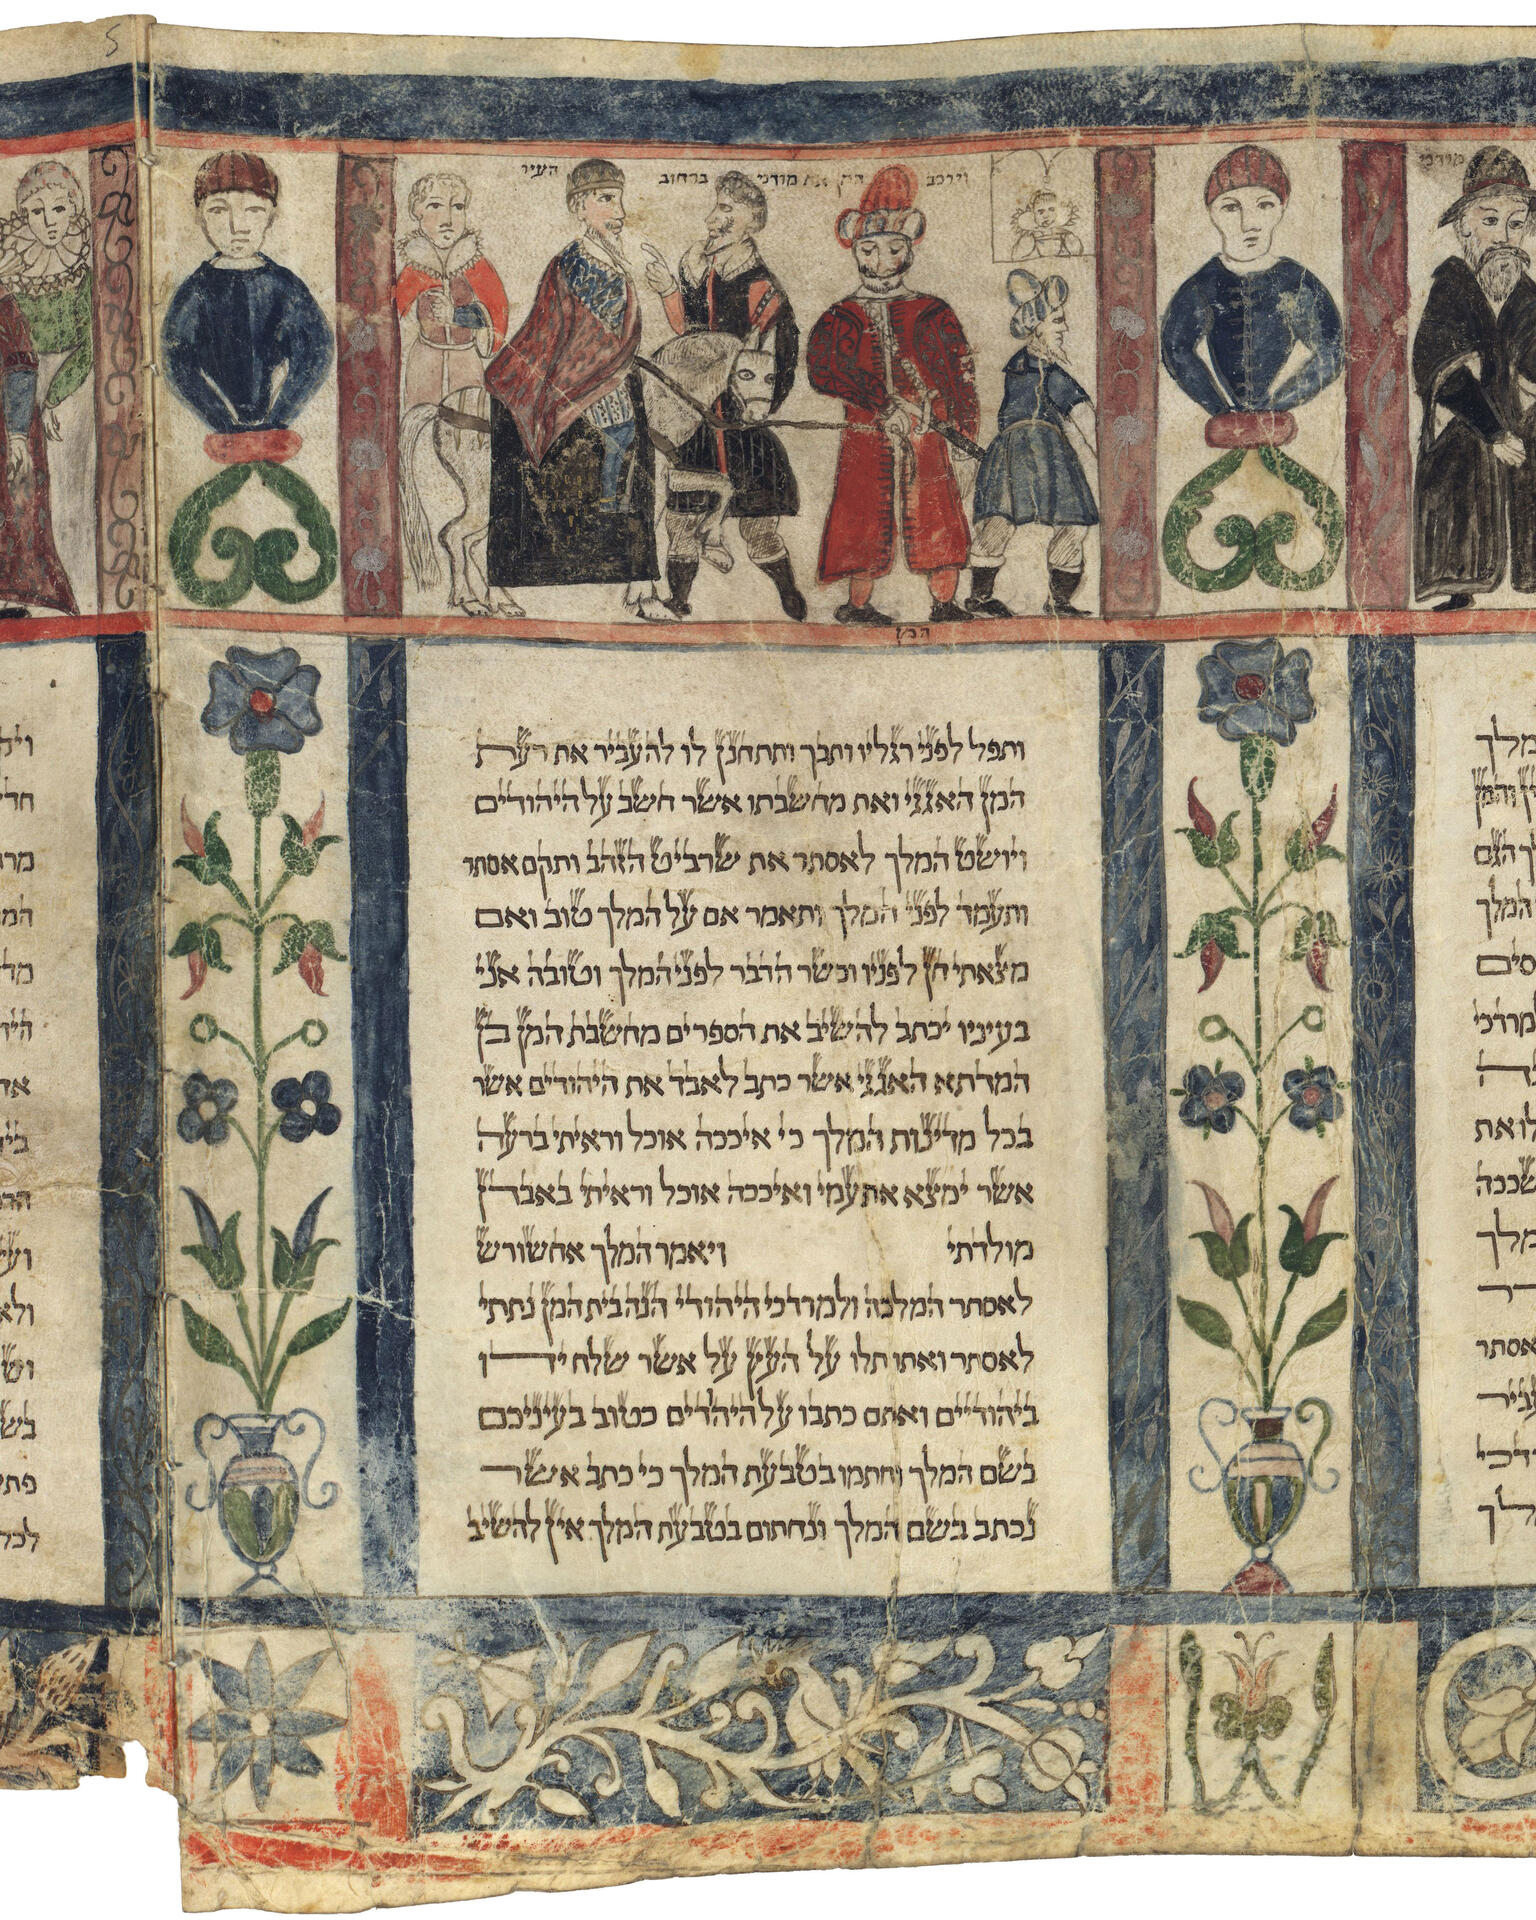 מורדכי
וירכב המן את מודכי ברחוב העיר
המן
מלך
והמן
ך הגם
המלך
סים
מרדכי
לו את
שככה
מלך
אסתר
עביר
דכי
לך
ותפל לפני רגליו ותבך ותתחנן לו להעביר את רעת
המן האגגי ואת מחשבתו אשר חשב על היהודים
ויושט המלך לאסתר את שרביט הזהב ותקם אסתר
ותעמד לפני המלך ותאמר אם על המלך טוב ואם
מצאתי חן לפניו וכשר הדבר לפני המלך וטובה אני
בעיניו יכתב להשיב את הספרים מחשבת המן בן
המדתא האגגי אשר כתב לאבד את היהודים אשר
בכל מדינות המלך כי איככה אוכל וראיתי ברעה
אשר ימצא את עמי ואיככה אוכל וראיתי באבדן
מולדתי ויאמר המלך אחשורש
לאסתר המלכה ולמרדכי היהודי הנה בית המן נתתי
לאסתר ואתו תלו על העץ על אשר שלח ידו
ביהודיים ואתם כתבו על היהדים כטוב בעיניכם
בשם המלך וחתמו בטבעת המלך כי כתב אשר
נכתב בשם המלך ונחתום בטבעת המלך אין להשיב
5